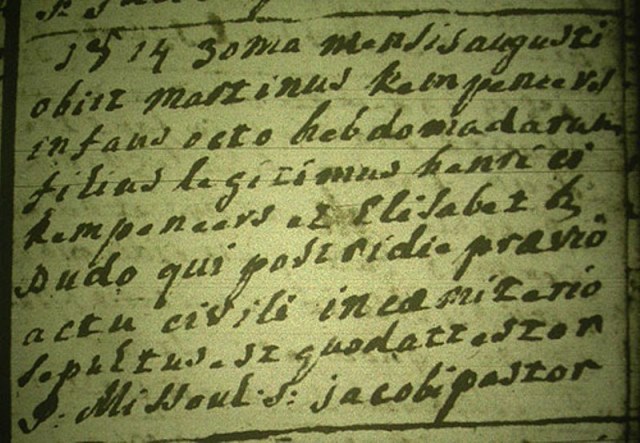 1814 30ma mensis augusti
obiit martinus kempeneers
infans octo hebdomadarum
filius legitimus henrici
kempeneers et Elisabet h
Dudo qui postridie prævio
actu civili in cœmiterio
sepultus est quod attestor
P: Missoul s: jacobi pastor